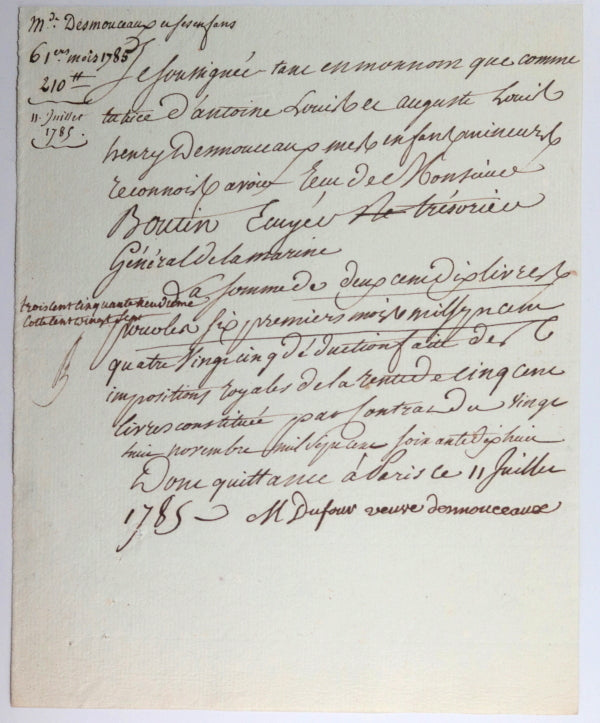 Mde Desmouceaux et ses enfans
6 1ers mois 1785
210 tt
11 Juillet
1785.
Je soussignée tant en mon nom que comme
tutrice d'antoine Louis et auguste Louis
henry Desmouceaux mes enfans mineurs
reconnois avoir Reçu de Monsieur
Boutin Ecuyer trésorier
Général de la marine
La somme de deux cent dix livres
trois cent cinquante neuvieme
Cotte cent vingt sept
pour les six premiers mois mil sept cent
quatre vingt cinq déduction faite des
impositions royales de la rente de cinq cent
livres constituée par Contrat du vingt
huit novembre mil sept cent soixante dix huit
Dont quittance à Paris ce 11 Juillet
1785 M Dufour veuve desmouceaux